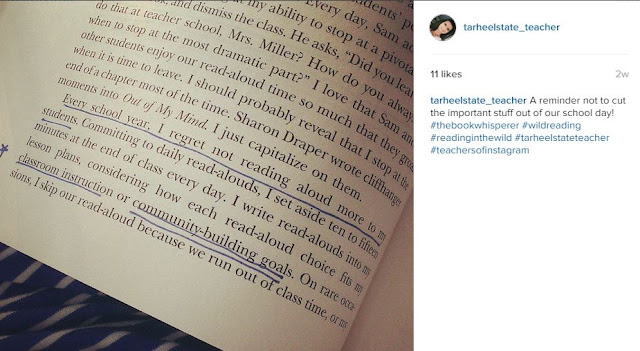 dents' pe
Every day, Sam ac
my ability to stop at a pivota
and dismiss the class. He asks, "Did you lear
do that at teacher school, Mrs. Miller? How do you alway
when to stop at the most dramatic part?" I love that Sam and
other students enjoy our read-aloud time so much that they groa
when it is time to leave. I should probably reveal that I stop at the
end of a chapter most of the time. Sharon Draper wrote cliffhanger
moments into Out of My Mind. I just capitalize on them.
Every school year, I regret not reading aloud more to my
students. Committing to daily read-alouds, I set aside ten to fifteen
minutes at the end of class every day. I write read-alouds into my
lesson plans, considering how each read-aloud choice fits my
classroom instruction or community-building goals. On rare occa-
sions, I skip our read-aloud because we run out of class time, or my
tarheelstate_teacher
11 likes 2w
tarheelstate_teacher A reminder not to cut
the important stuff out of our school day!
#thebookwhisperer #wildreading
#readinginthewild #tarheelstateteacher
#teachersofinstagram